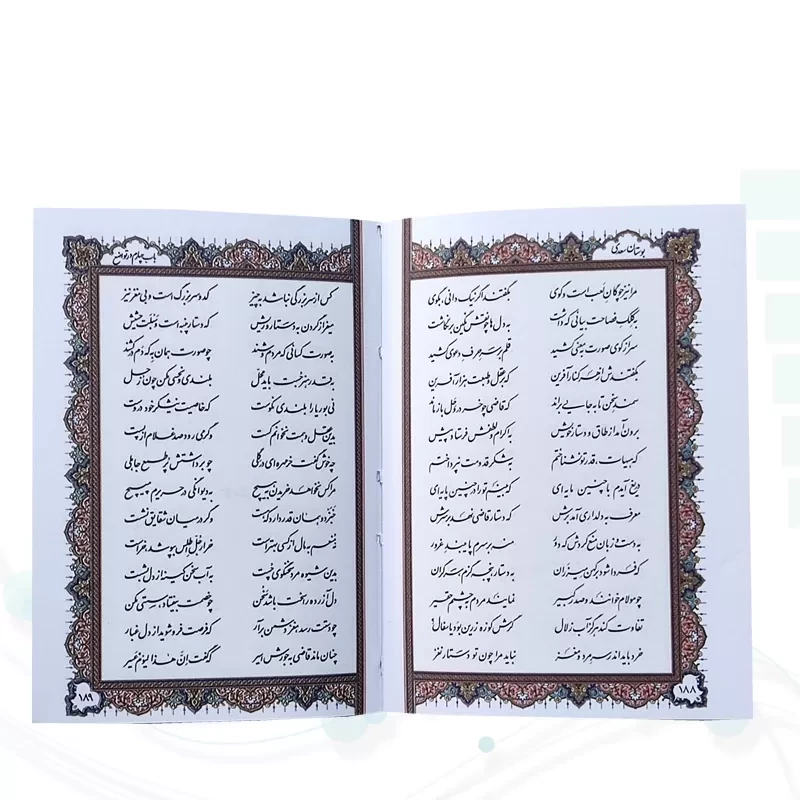 بوستان سعدی
مرا نیز چوگان لعب است و گوی بگفتند اگر نیک دانی بگوی
به کلک فصاحت بیانی که داشت به دل‌ها چو نقش نگین برنگاشت
سر از کوی صورت به معنی کشید قلم بر سر حرف دعوی کشید
بگفتندش از هر کنار آفرین که بر عقل و طبعت هزار آفرین
سمند سخن تا به جایی براند که قاضی چو خر در وحل بازماند
برون آمد از طاق و دستار خویش به اکرام و لطفش فرستاد پیش
که هیهات، قدر تو نشناختم به شکر قدومت نپرداختم
دریغ آیدم با چنین مایه‌ای که بینم تو را در چنین پایه‌ای
معرف به دلداری آمد برش که دستار قاضی نهد بر سرش
به دست و زبان منع کردش که دور منه بر سرم پایبند غرور
که فردا شود بر کهن میزران به دستار پنجه گزم سرگران
چو مولام خوانند و صدر کبیر نمایند مردم به چشم حقیر
تفاوت کند هرگز آب زلال گرش کوزه زرین بود یا سفال؟
خرد باید اندر سر مرد و مغز نباید مرا چون تو دستار نغز
۱۸۸
باب چهارم در تواضع
کس از سر بزرگی نباشد به چیز کدو سر بزرگ است و بی مغز نیز
میفراز گردن به دستار و ریش که دستار پنبه است و سبلت حشیش
به صورت کسانی که مردم وشند چو صورت همان به که دم درکشند
به قدر هنر جست باید محل بلندی و نحسی مکن چون زحل
نی بوریا را بلندی نکوست که خاصیت نیشکر خود در اوست
بدین عقل و همت نخوانم کست وگر می رود صد غلام از پست
چه خوش گفت خرمهره‌ای در گلی چو برداشتش پر طمع جاهلی
مرا کس نخواهد خریدن به هیچ به دیوانگی در حریرم مپیچ
خبزدو همان قدر دارد که هست وگر در میان شقایق نشست
نه منعم به مال از کسی بهتر است خر ار جل اطلس بپوشد خر است
بدین شیوه مرد سخنگوی چست به آب سخن کینه از دل بشست
دل آزرده را سخت باشد سخن چو خصمت بیفتاد سستی مکن
چو دستت رسد مغز دشمن برآر که فرصت فرو شوید از دل غبار
چنان ماند قاضی به جورش اسیر که گفت ان هذا لیوم عسیر
۱۸۹